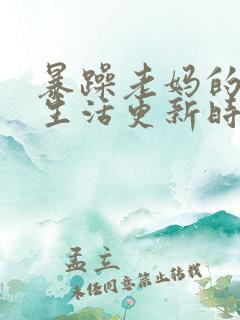 暴躁老妈的
生活更新时
孟立
未经同意禁止转载